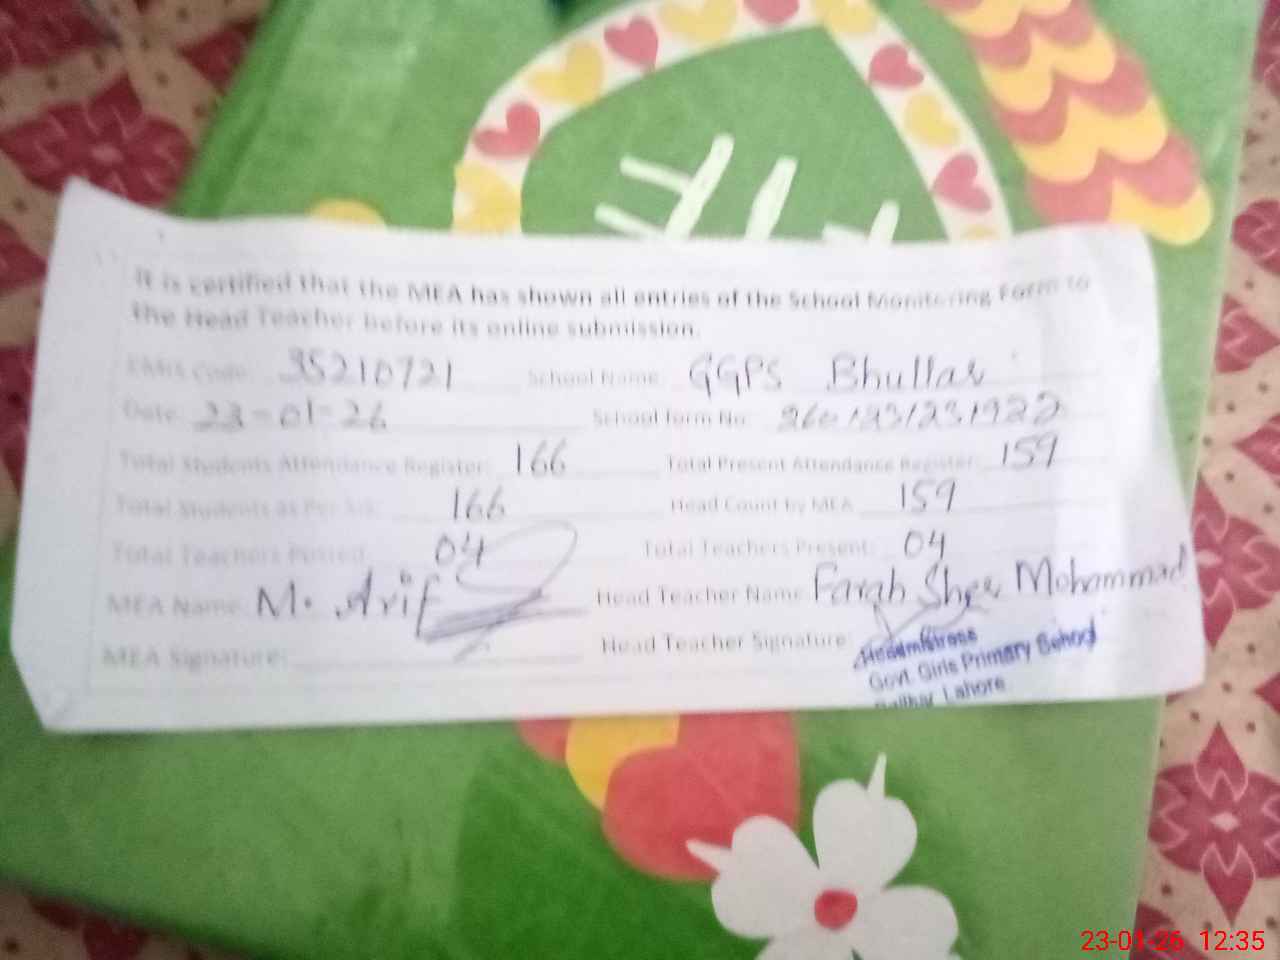 It is certified that the MEA has shown all entries of the School Monitoring Form to
the Head Teacher before its online submission.
EMIS Code: 35210721 School Name: GGPS Bhullar
Date: 23-01-26 School form No:
Total Students Attendance Register: 166 Total Present Attendance Register: 159
Total Students as Per SIS: 166 Head Count by MEA 159
Total Teachers Posted: 04 Total Teachers Present: 04
MEA Name: M. Arif Head Teacher Name Farah Sher Mohammad
MEA Signature: Head Teacher Signature:
Headmistress
Govt. Girls Primary School
Lahore
23-01-26 12:35